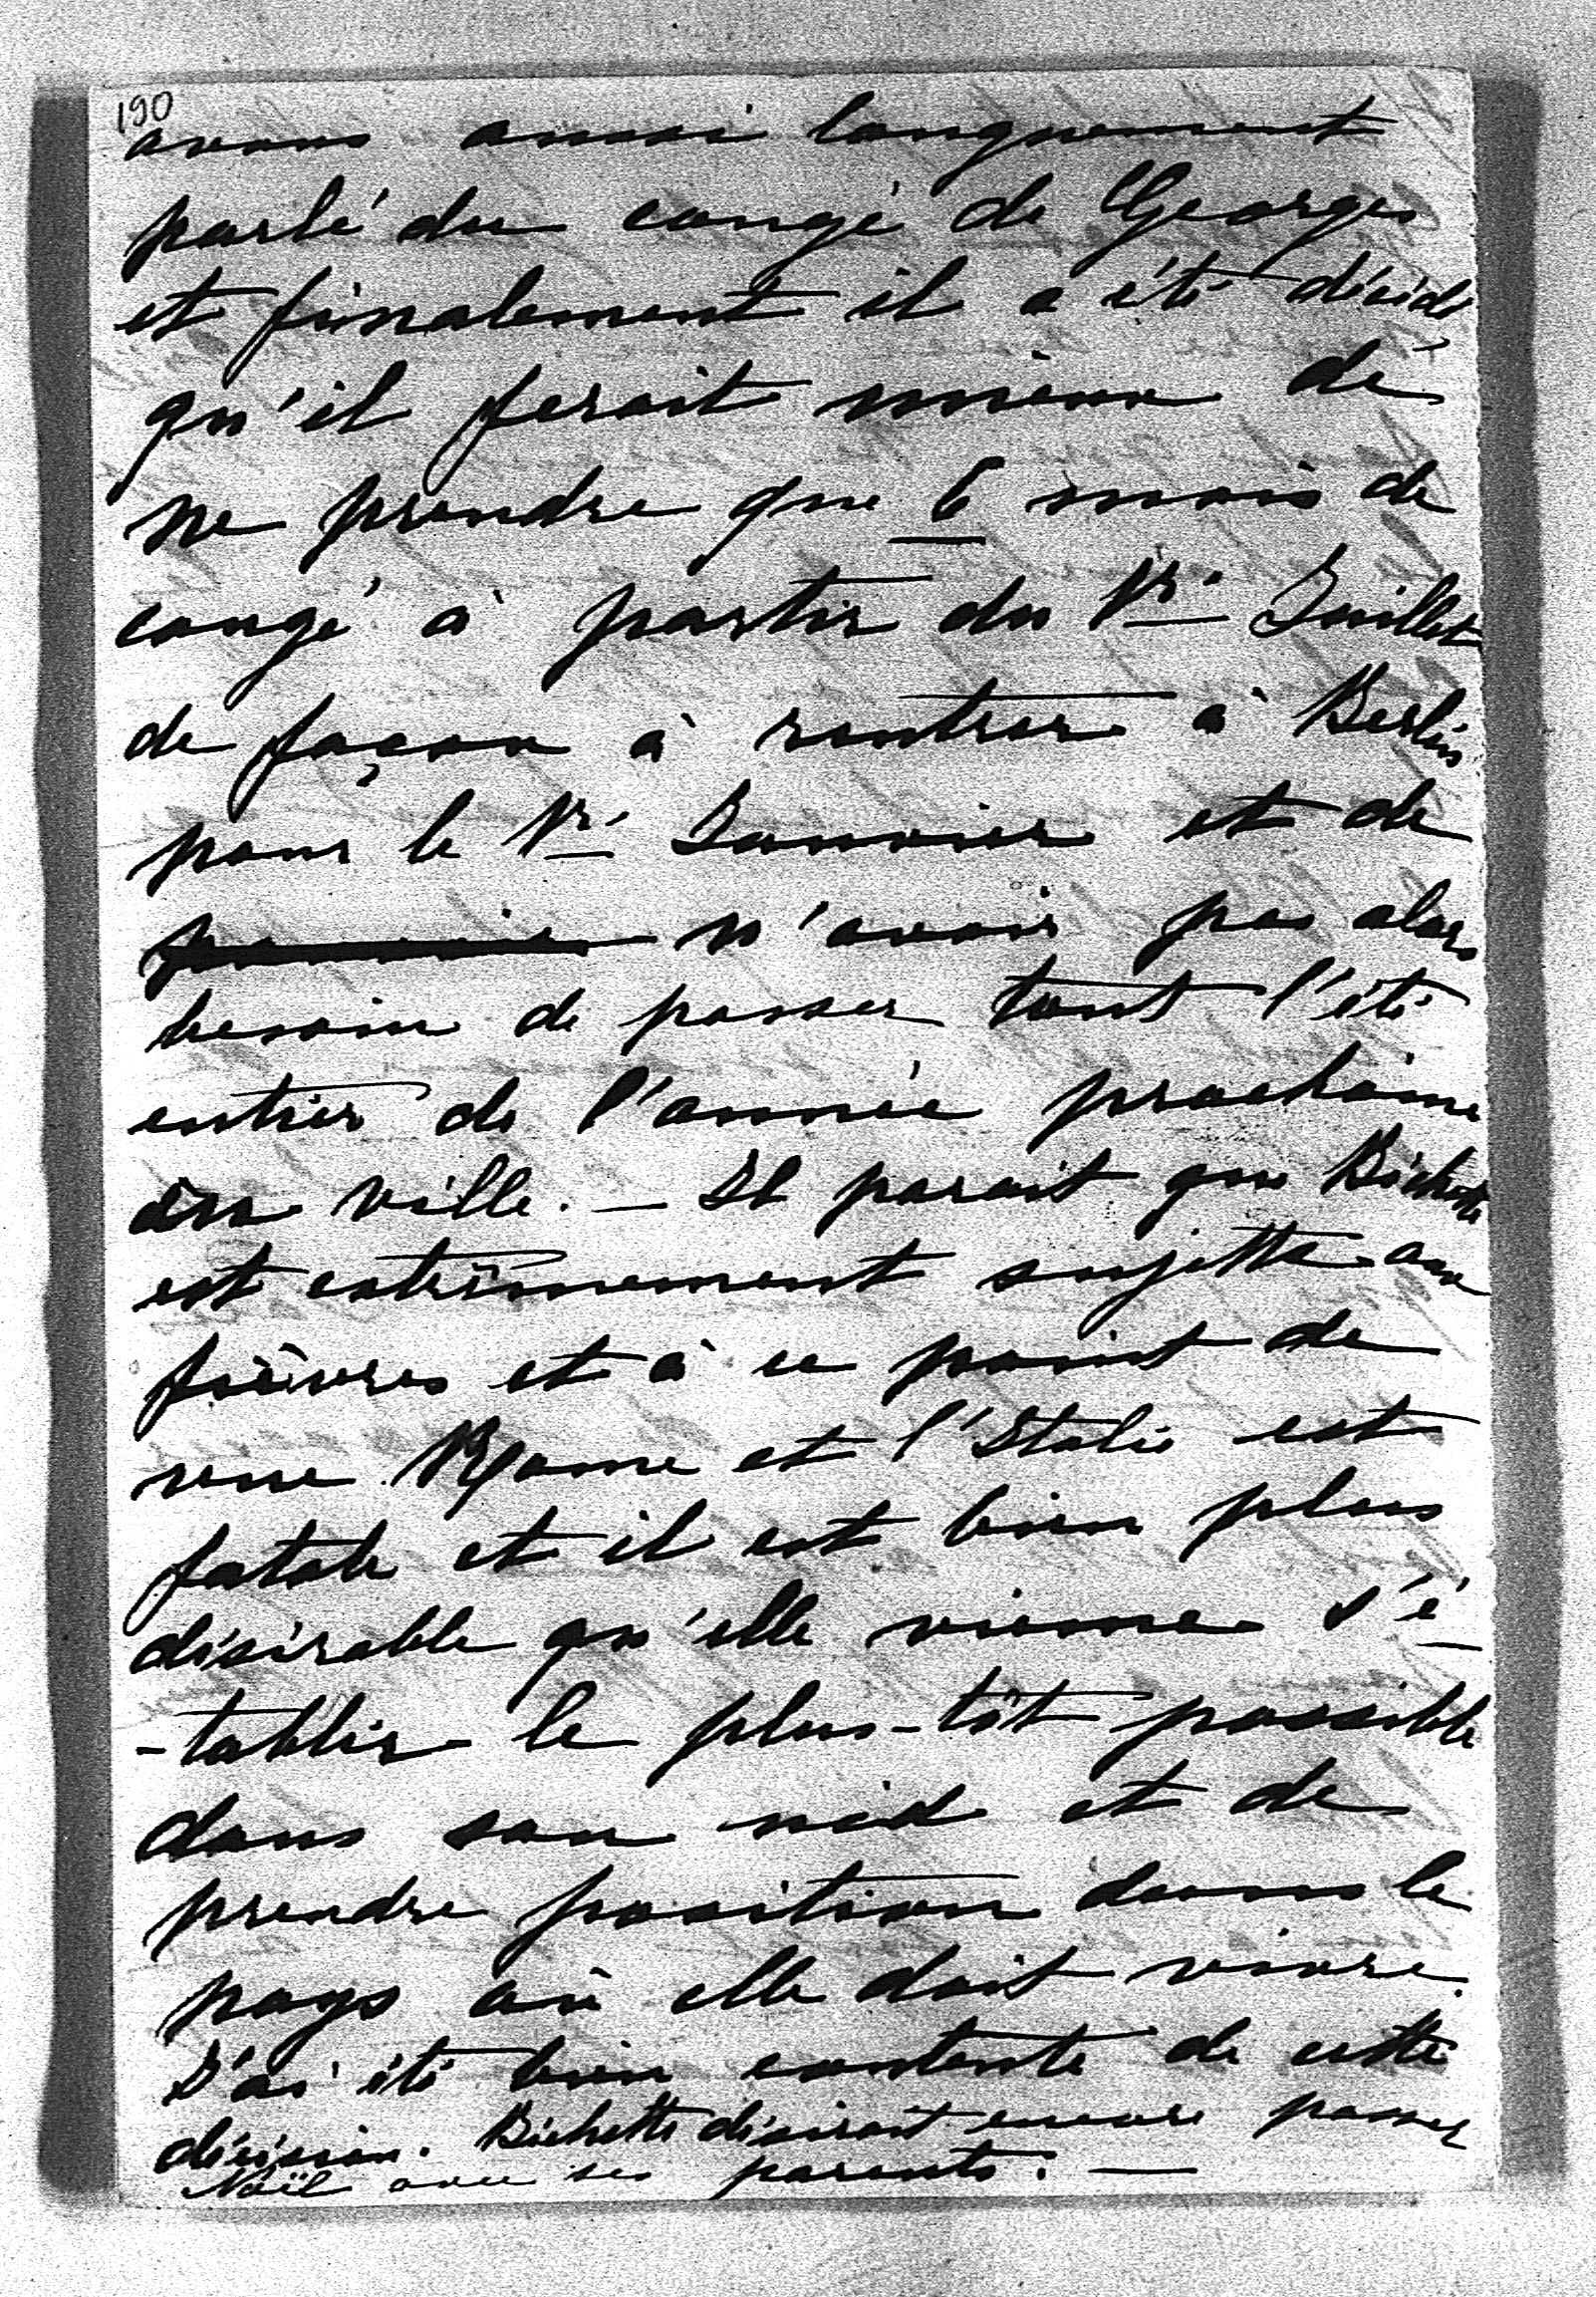 190
avons aussi longuement
parlé du congé de Georges
et finalement il a été décidé
qu'il ferait mieux de
ne prendre que 6 mois de
congé à partir du 1r Juillet
de façon à rentrer à Berlin
pour le 1r Janvier et de
n'avoir pas alors
besoin de passer tout l'été
entier de l'année prochaine
en ville. — Il parait que Bichette
est extrêmement sujette aux
fièvres et à ce point de
vue Rome et l'Italie est
fatale et il est bien plus
désirable qu'elle vienne s'é-
-tablir le plus-tôt possible
dans son nid et de
prendre position dans le
pays où elle doit vivre.
J'ai été bien contente de cette
décision. Bichette désirait encore passer
Noël avec ses parents. —